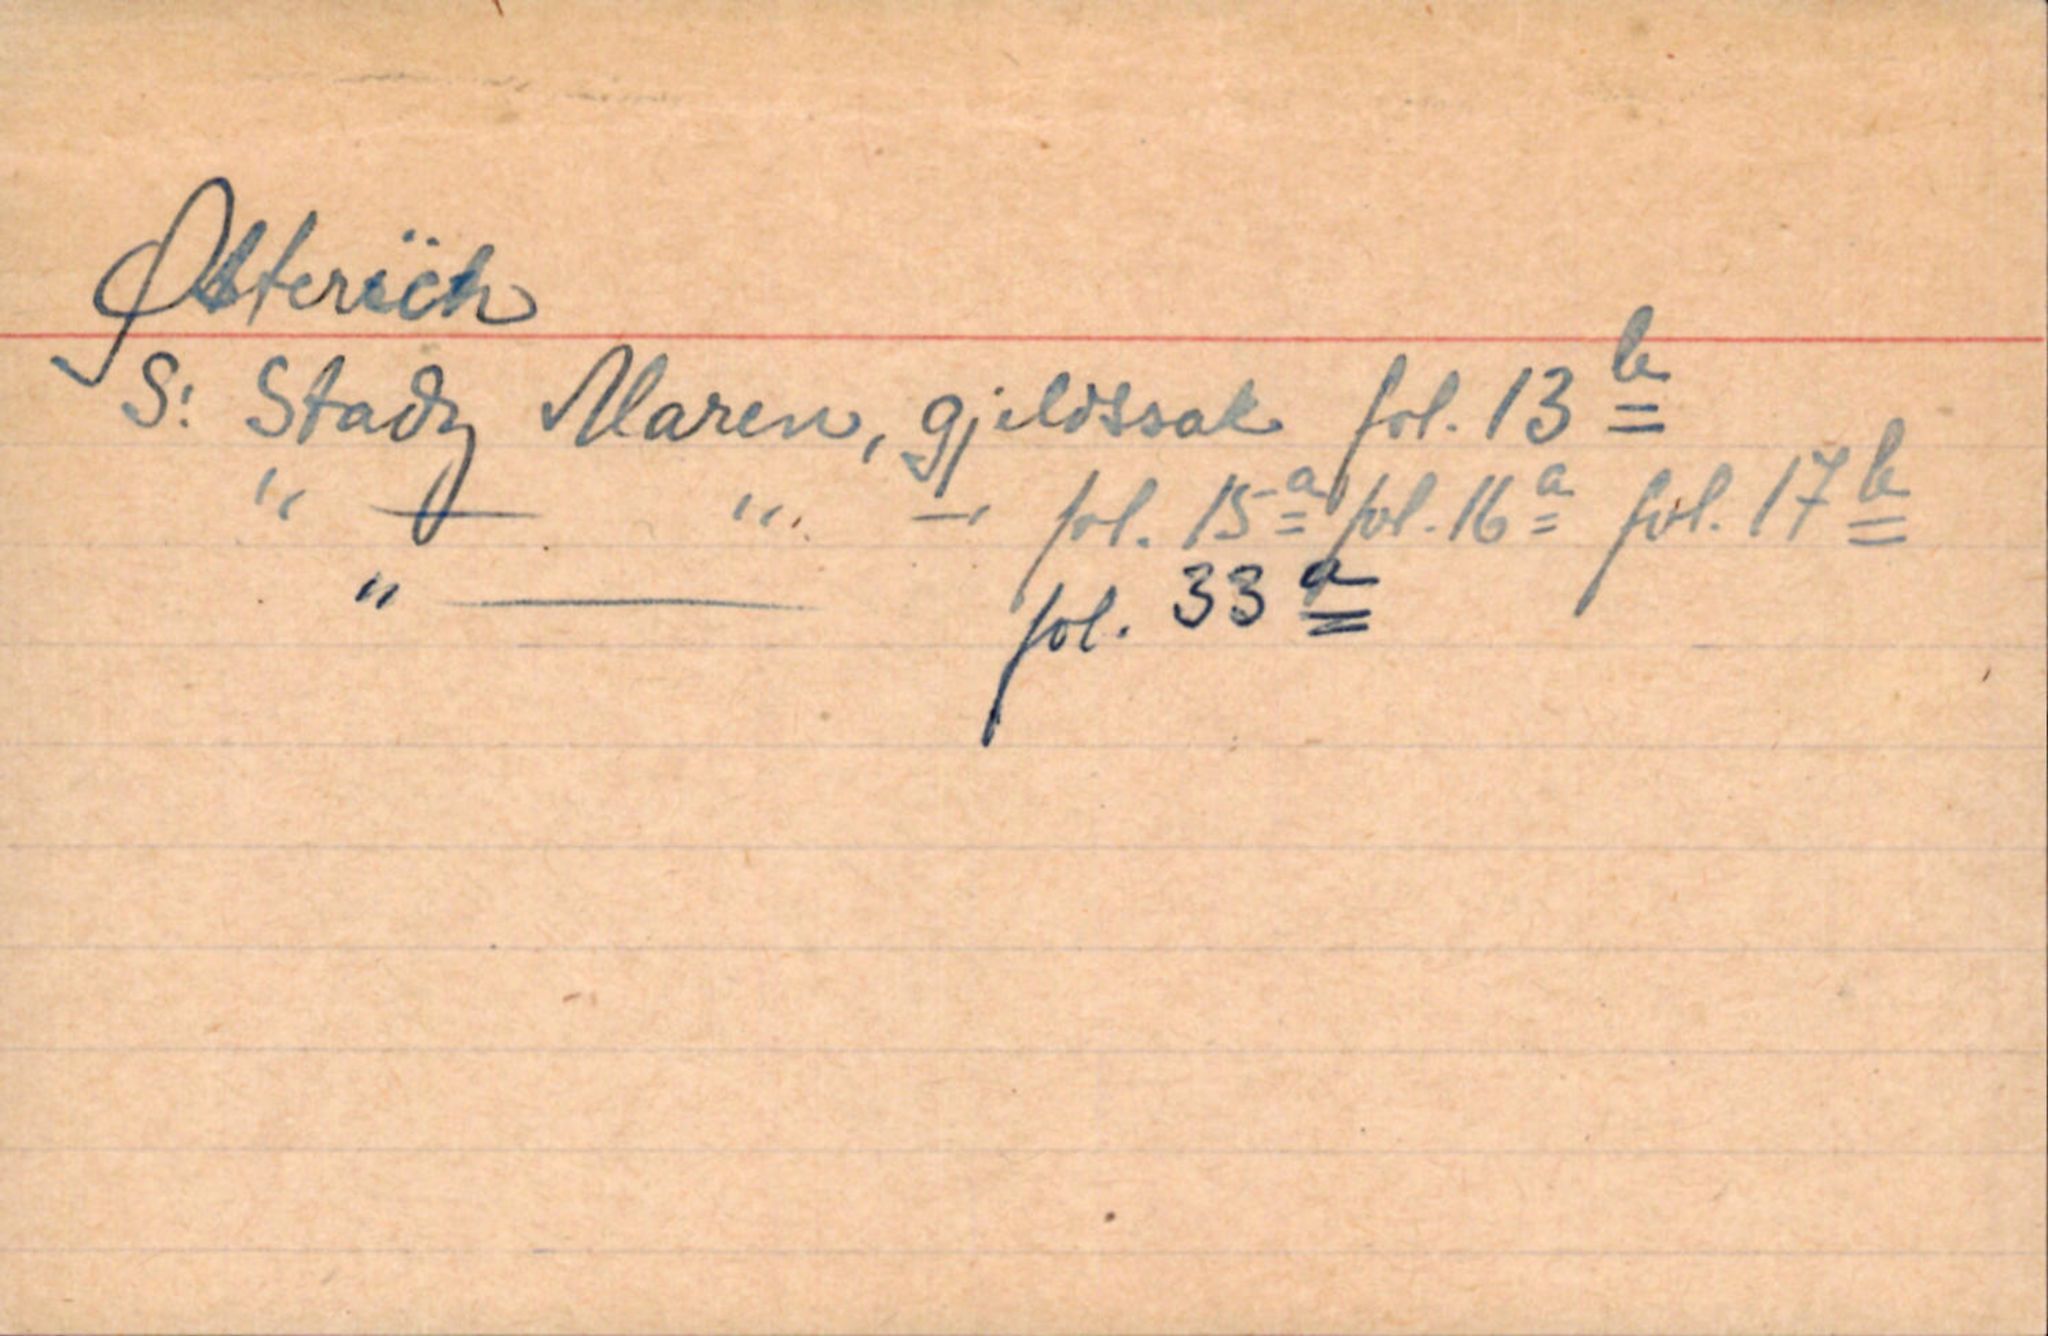 Østerich
S: Stadz Maren, gjeldssak fol. 13 b
" — " — fol. 15 a fol. 16 a fol. 17 b
" — fol. 33 a